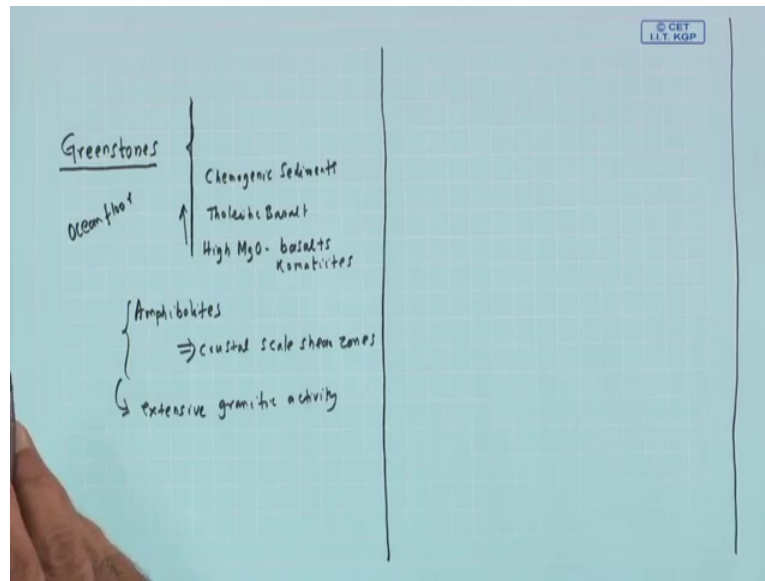 © CET
I.I.T. KGP
Greenstones
Ocean floor
Chemogenic Sediments
Tholeiitic Basalt
High MgO - basalts
Komatiites
Amphibolites
⇒ crustal scale shear zones
extensive granitic activity